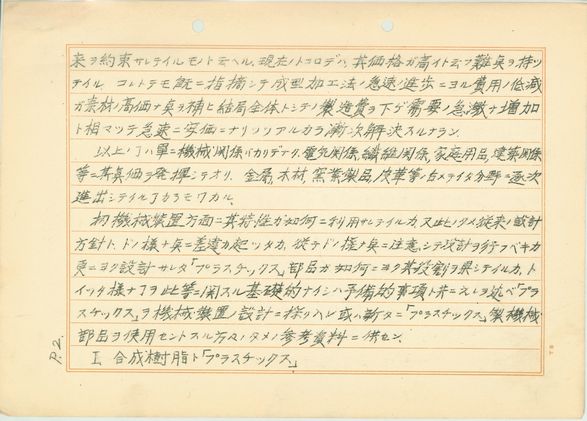 来ヲ約束サレテイルモノト云ヘル.現在ノトコロデハ、其価格ガ高イト云フ難点ヲ持ツ
テイル. コレトテモ既ニ指摘シテ成型加工法ノ急速進歩ニヨル費用ノ低減
ガ素材ノ高価ナ点ヲ補ヒ結局全体トシテノ製造費ヲ下ゲ需要ノ急激ナ増加
ト相マッテ急速ニ安価ニナリツツアルカラ漸次解決スルナラン.
以上ノ事ハ単ニ機械関係バカリデナク、電気関係,繊維関係,家庭用品,建築関係
等ニ其真価ヲ発揮シテオリ、金属,木材,窯業製品,皮革等ノ占メテイタ分野ニ逐次
進出シテイル事カラモワカル.
扨機械装置方面ニ其特性ガ如何ニ利用サレテイルカ,又此ノタメ従来ノ設計
方針ト、ドノ様ナ点ニ差違ガ起ッタカ,従テドノ様ナ点ニ注意シテ設計ヲ行フベキカ
更ニヨク設計サレタ「プラスチックス」部品ガ如何ニヨク其役割ヲ果シテイルカ,ト
イッタ様ナ事ヲ此等ニ関スル基礎的ナイシハ予備的事項ト共ニ之レヲ述ベ「プラ
スチックス」ヲ機械装置ノ設計ニ採リ入レ或ハ新タニ「プラスチックス」製機械
部品ヲ使用セントスル方々ノタメノ参考資料ニ供セン.
I 合成樹脂ト「プラスチックス」
P.2.